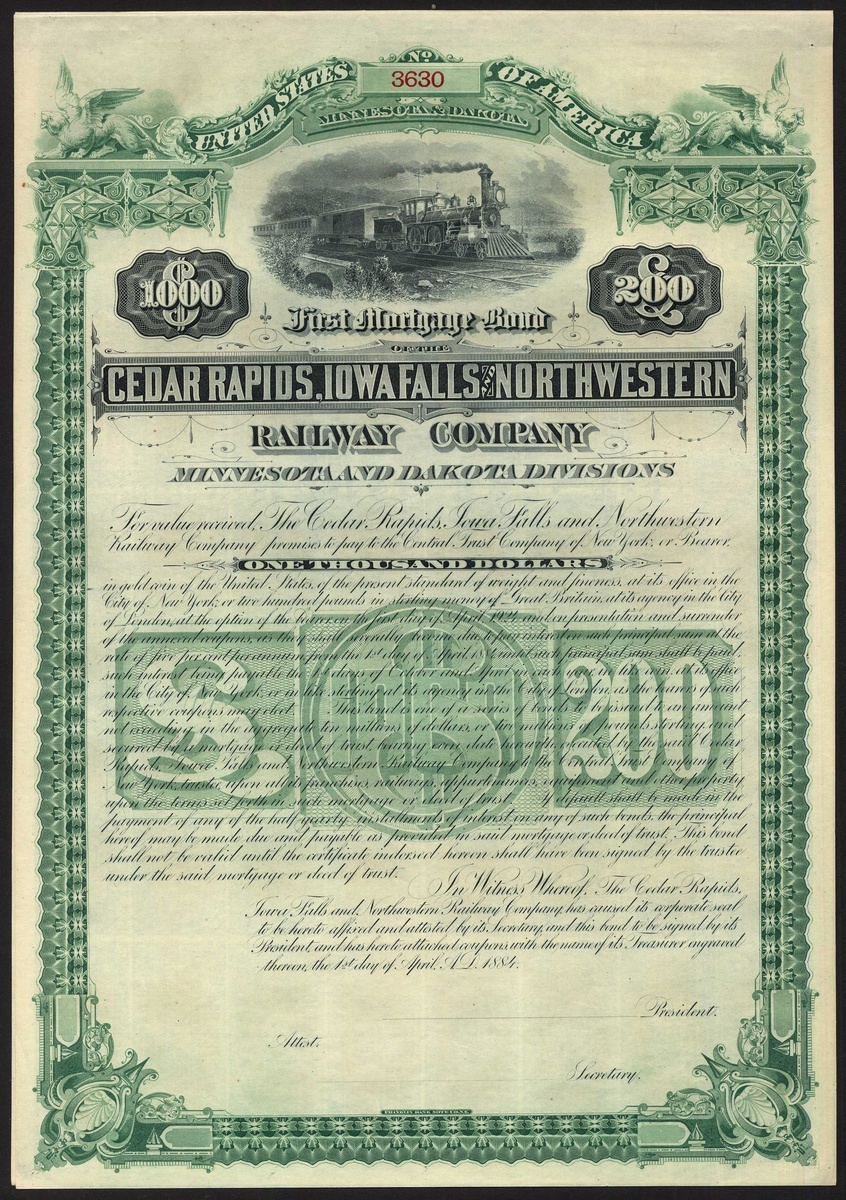 No
3630
UNITED STATES OF AMERICA
MINNESOTA & DAKOTA.
$1000
£200
First Mortgage Bond
OF THE
CEDAR RAPIDS, IOWA FALLS AND NORTHWESTERN
RAILWAY COMPANY
MINNESOTA AND DAKOTA DIVISIONS
For value received, The Cedar Rapids, Iowa Falls and Northwestern
Railway Company promises to pay to the Central Trust Company of New York, or Bearer,
ONE THOUSAND DOLLARS
in gold coin of the United States, of the present standard of weight and fineness, at its office in the
City of New York, or two hundred pounds in sterling money of Great Britain, at its agency in the City
of London, at the option of the bearer, on the first day of April, and on presentation and surrender
of the annexed coupons, as they shall severally become due, to pay interest on such principal sum at the
rate of five per cent per annum from the 1st day of April until such principal sum shall be paid,
such interest being payable the days of October and April in each year, in like coin, at its office
in the City of New York, or in like sterling at its agency in the City of London, as the bearers of such
respective coupons may elect. This bond is one of a series of bonds to be issued to an amount
not exceeding in the aggregate ten millions of dollars, or two millions of pounds sterling, and
secured by a mortgage or deed of trust, bearing even date herewith, executed by the said Cedar
Rapids, Iowa Falls and Northwestern Railway Company to the Central Trust Company of
New York, trustee, upon all its franchises, railways, appurtenances, equipment and other property
upon the terms set forth in such mortgage or deed of trust. If default shall be made in the
payment of any of the half yearly installments of interest on any of such bonds, the principal
hereof may be made due and payable as provided in said mortgage or deed of trust. This bond
shall not be valid until the certificate indorsed hereon shall have been signed by the trustee
under the said mortgage or deed of trust.
In Witness Whereof, The Cedar Rapids,
Iowa Falls and Northwestern Railway Company, has caused its corporate seal
to be hereto affixed and attested by its Secretary, and this bond to be signed by its
President, and has hereto attached coupons, with the name of its Treasurer engraved
thereon, the 1st day of April, A.D. 1884.
President.
Attest.
Secretary.
FRANKLIN BANK NOTE CO. N.Y.